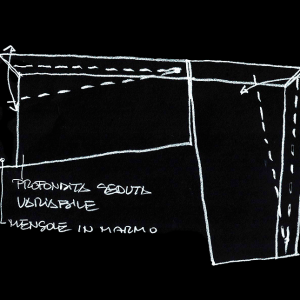 PROFONDITÀ SEDUTA
VARIABILE
MENSOLE IN MARMO